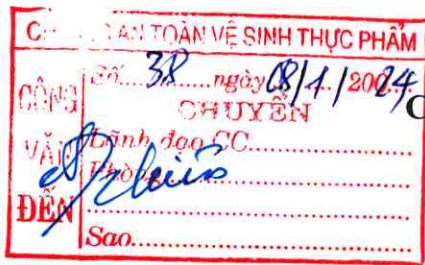 C AN TOÀN VỆ SINH THỰC PHẨM
CÔNG VĂN ĐẾN
Số 38 ngày 08/1/2024
CHUYỂN
Lãnh đạo CC
Phòng
Sao
C